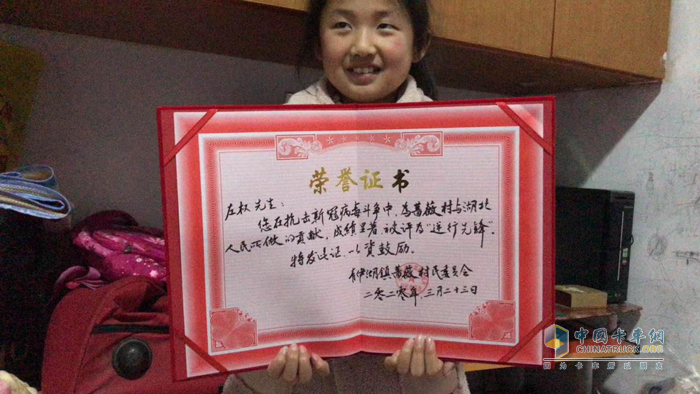 荣誉证书
左权先生：
您在抗击新冠病毒斗争中，为蔷薇村与湖北
人民所做的贡献，成绩显著，被评为“逆行先锋”。
特发此证，以资鼓励。
钟湖镇蔷薇村民委员会
二零二零年三月二十三日
中国卡车网
CHINATRUCK.ORG
因为卡车所以朋友